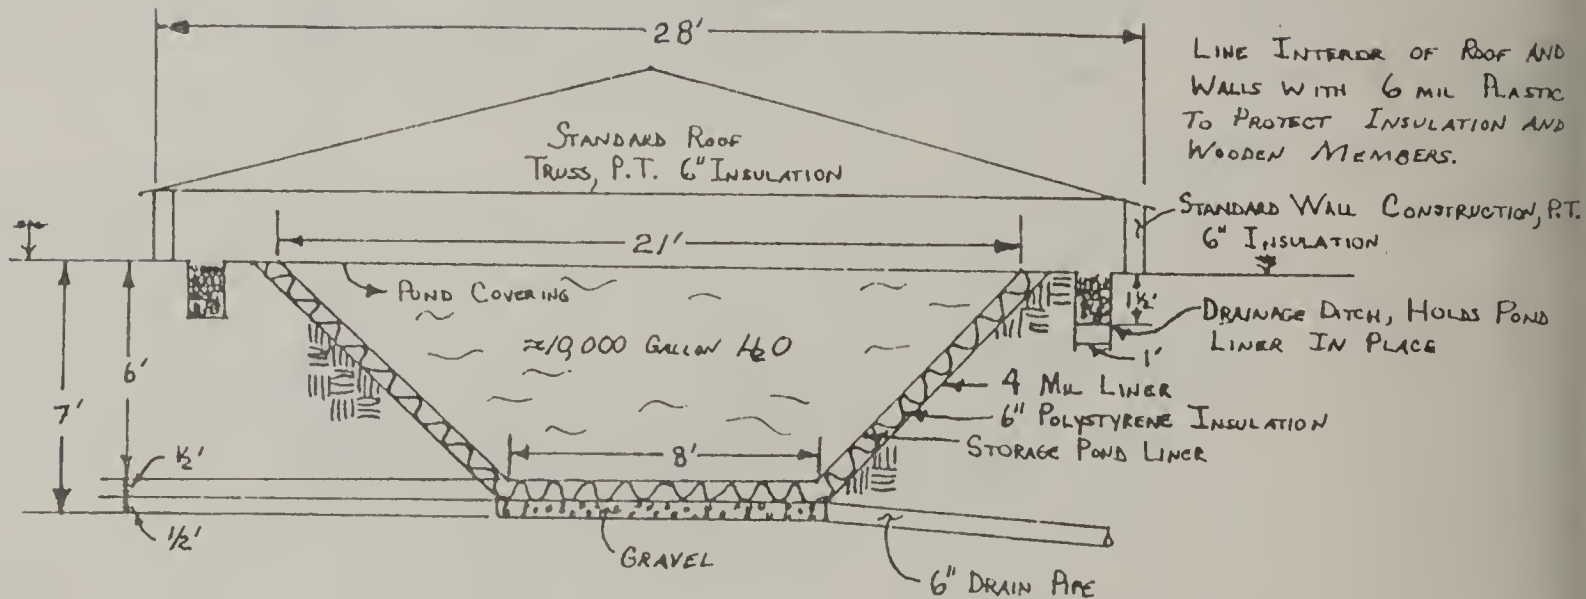 28'
LINE INTERIOR OF ROOF AND
WALLS WITH 6 MIL PLASTIC
TO PROTECT INSULATION AND
WOODEN MEMBERS.
STANDARD ROOF
TRUSS, P.T. 6" INSULATION
STANDARD WALL CONSTRUCTION, P.T.
6" INSULATION
21'
POND COVERING
1½'
≈10,000 GALLON H2O
DRAINAGE DITCH, HOLDS POND
LINER IN PLACE
1'
6'
7'
4 MIL LINER
6" POLYSTYRENE INSULATION
STORAGE POND LINER
8'
½'
1/2'
GRAVEL
6" DRAIN PIPE